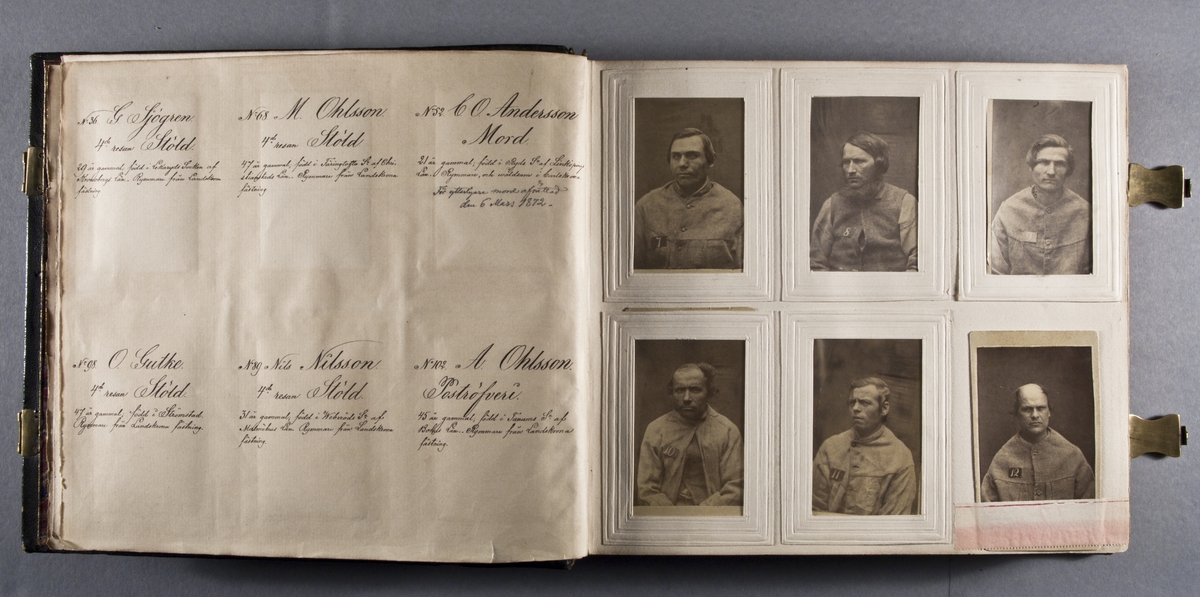 No 36 G Sjögren
4de resan Stöld.
29 år gammal, född i
Län. Rymmare från Landskrona
fästning
No 68 M. Ohlsson
4de resan Stöld
47 år gammal, född i Sn af
Län. Rymmare från Landskrona
fästning
No 52 C O Andersson
Mord.
21 år gammal, född i Sn af Linköpings
Län. Rymmare, och i Landskrona
För ytterligare mord
den 6 Mars 1872.
No 98 O. Gutke.
4de resan Stöld.
47 år gammal, född i Strömstad.
Rymmare från Landskrona fästning.
No 89 Nils Nilsson
4de resan Stöld.
31 år gammal, född i Sn af
Malmöhus Län. Rymmare från Landskrona
fästning.
No 102 A. Ohlsson.
Poströfveri.
45 år gammal, född i Sn af
Län. Rymmare från Landskrona
fästning.
7
8
10
11
12